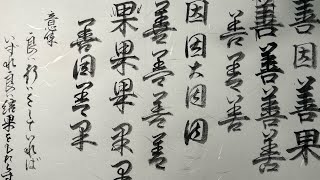 善因善果
善善善善
善善
因因大因因
善善善善
果果果果果
善因善果
意味
良い行いをしていれば
いずれ良い結果をもたらす